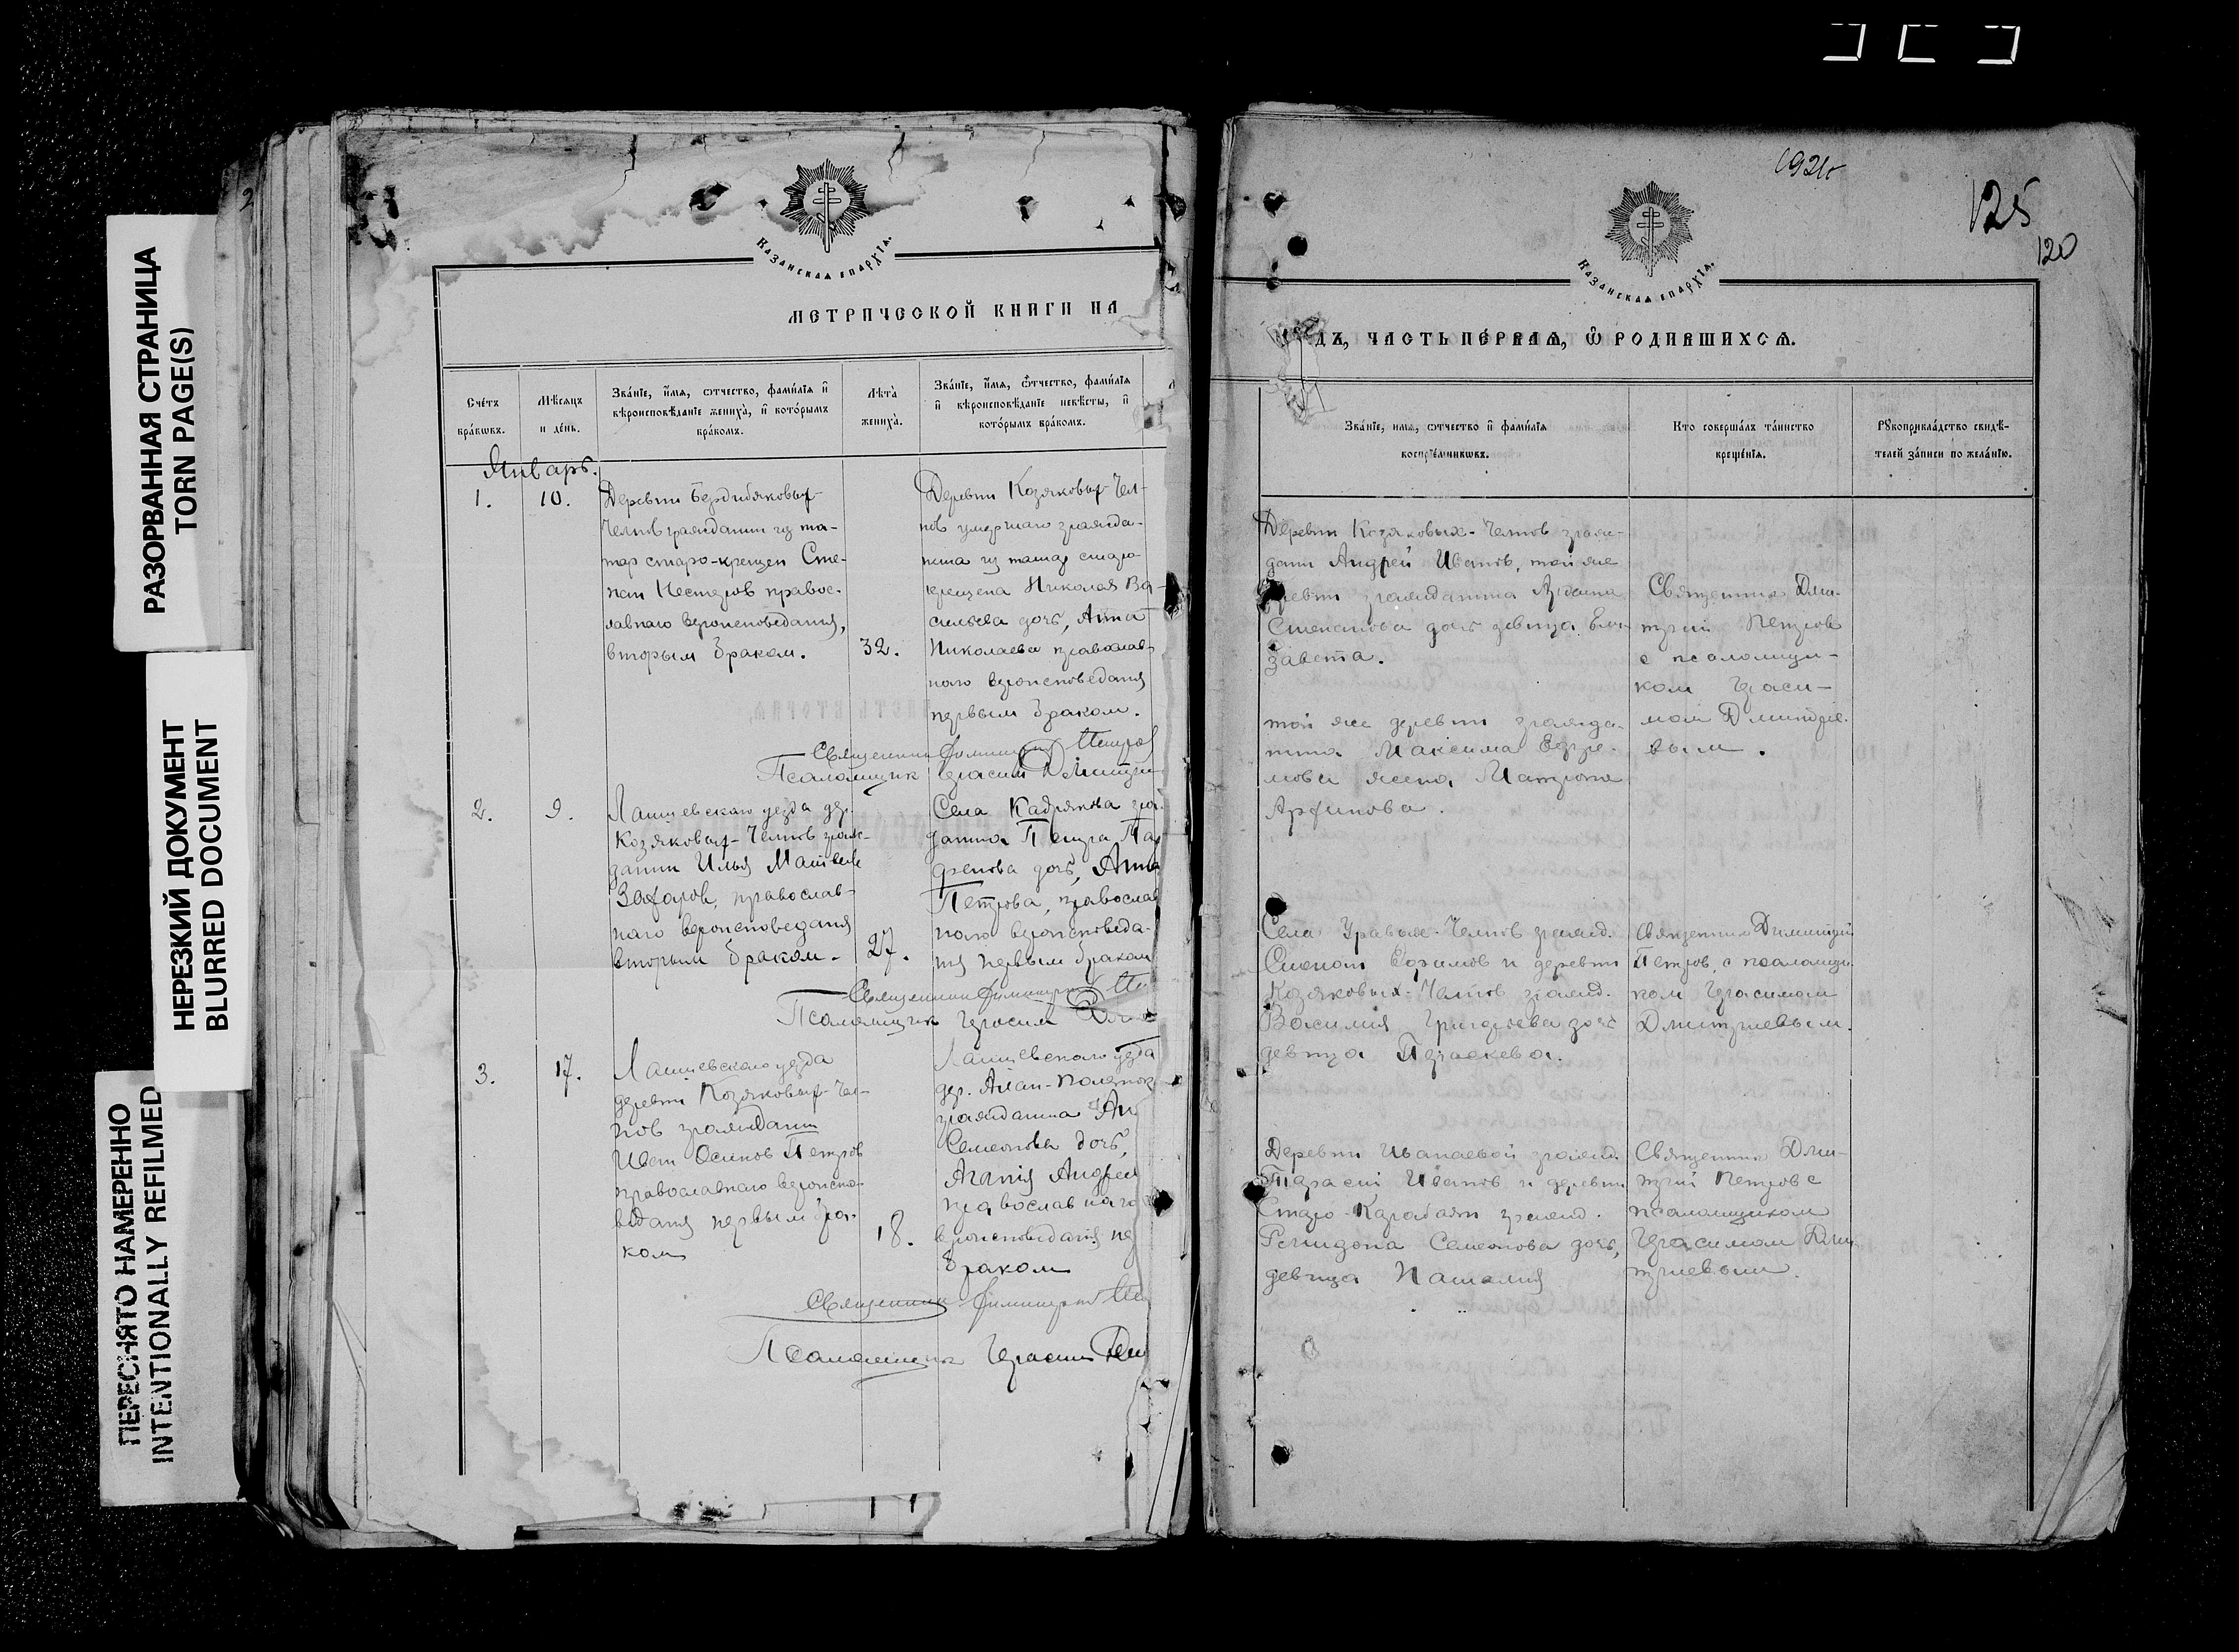 РАЗОРВАННАЯ СТРАНИЦА
TORN PAGE(S)
НЕРЕЗКИЙ ДОКУМЕНТ
BLURRED DOCUMENT
ПЕРЕСНЯТО НАМЕРЕННО
INTENTIONALLY REFILMED
КАЗАНСКАЯ ЕПАРХІЯ.
МЕТРИЧЕСКОЙ КНИГИ НА
Счетъ
браковъ.
Мѣсяцъ
и день.
Званіе, имя, отчество, фамилія и
вѣроисповѣданіе жениха, и которымъ
бракомъ.
Лѣта
жениха.
Званіе, имя, отчество, фамилія
и вѣроисповѣданіе невѣсты, и
которымъ бракомъ.
Январь.
1.
10.
Деревни Бердибяковых
Челнов гражданин из та-
тар старо-крещен Сте-
пан Нестеров правос-
лавнаго вероисповедания,
вторым браком.
32.
Деревни Козяковых Чел-
нов умершаго гражда-
нина из татар старо
крещена Николая Ва-
сильева дочь, Анна
Николаева православ-
наго вероисповедания
первым браком.
Священник Димитрий Петров
Псаломщик Герасим Дмитри
2.
9.
Лаишевскаго уезда дер.
Козяковых-Челнов граж-
данин Илья Матвеев
Захаров, православ-
наго вероисповедания
вторым браком.
27.
Села Кадряково гра
данина Петра
дочь, Анна
Петрова, православ
наго вероисповеда-
ния первым браком
Священник Димитрий
Псаломщик Герасим
3.
17.
Лаишевскаго уезда
деревни Козяковых-Чел-
нов гражданин
Иван Осипов Петров
православнаго вероиспо-
ведания первым бра-
ком
18.
Лаишевскаго уезда
дер. Алан-Полянок
гражданина Ан
Семенова дочь,
Андрее
православнаго
вероисповедания пе
браком
Священник Димитрий
Псаломщик Герасим Дми
1921г
125
120
КАЗАНСКАЯ ЕПАРХІЯ.
ДЪ, ЧАСТЬ ПЕРВАЯ, Ѡ РОДИВШИХСЯ.
Званіе, имя, отчество и фамилія
воспріемниковъ.
Кто совершалъ таинство
крещенія.
Рукоприкладство свидѣ-
телей записи по желанію.
Деревни Козяковых-Челнов граж-
данин Андрей Иванов, той же
деревни гражданина
Степанова дочь девица Ели-
завета.
той же деревни гражда-
нина Максима Ефре-
мова жена Матрона
Священник Дми-
трий Петров
с псаломщи-
ком Гераси-
мом Дмитрие-
вым.
Села Челнов гражд.
Ефимов и деревни
Козяковых-Челнов гражд.
Василия Григорьева дочь
девица Параскева.
Священник Димитрий
Петров, с псаломщи-
ком Герасимом
Дмитриевым.
Деревни Иванаевой гражд.
Тарасий Иванов и деревни
Старо-Карабаян гражд.
Семенова дочь,
девица Наталия
Священник Дми-
трий Петров с
псаломщиком
Герасимом Дми
триевым.